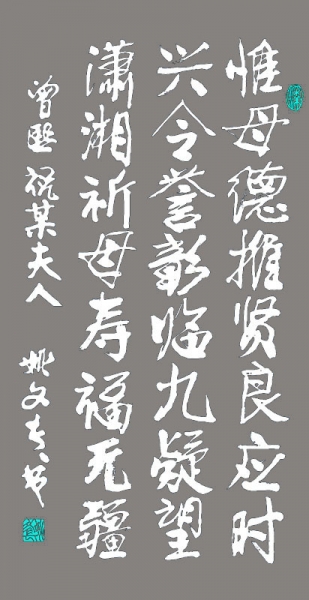 惟母德推贤良应时
兴令誉彰临九疑望
潇湘祈母寿福无疆
曾熙祝某夫人
姚文专书